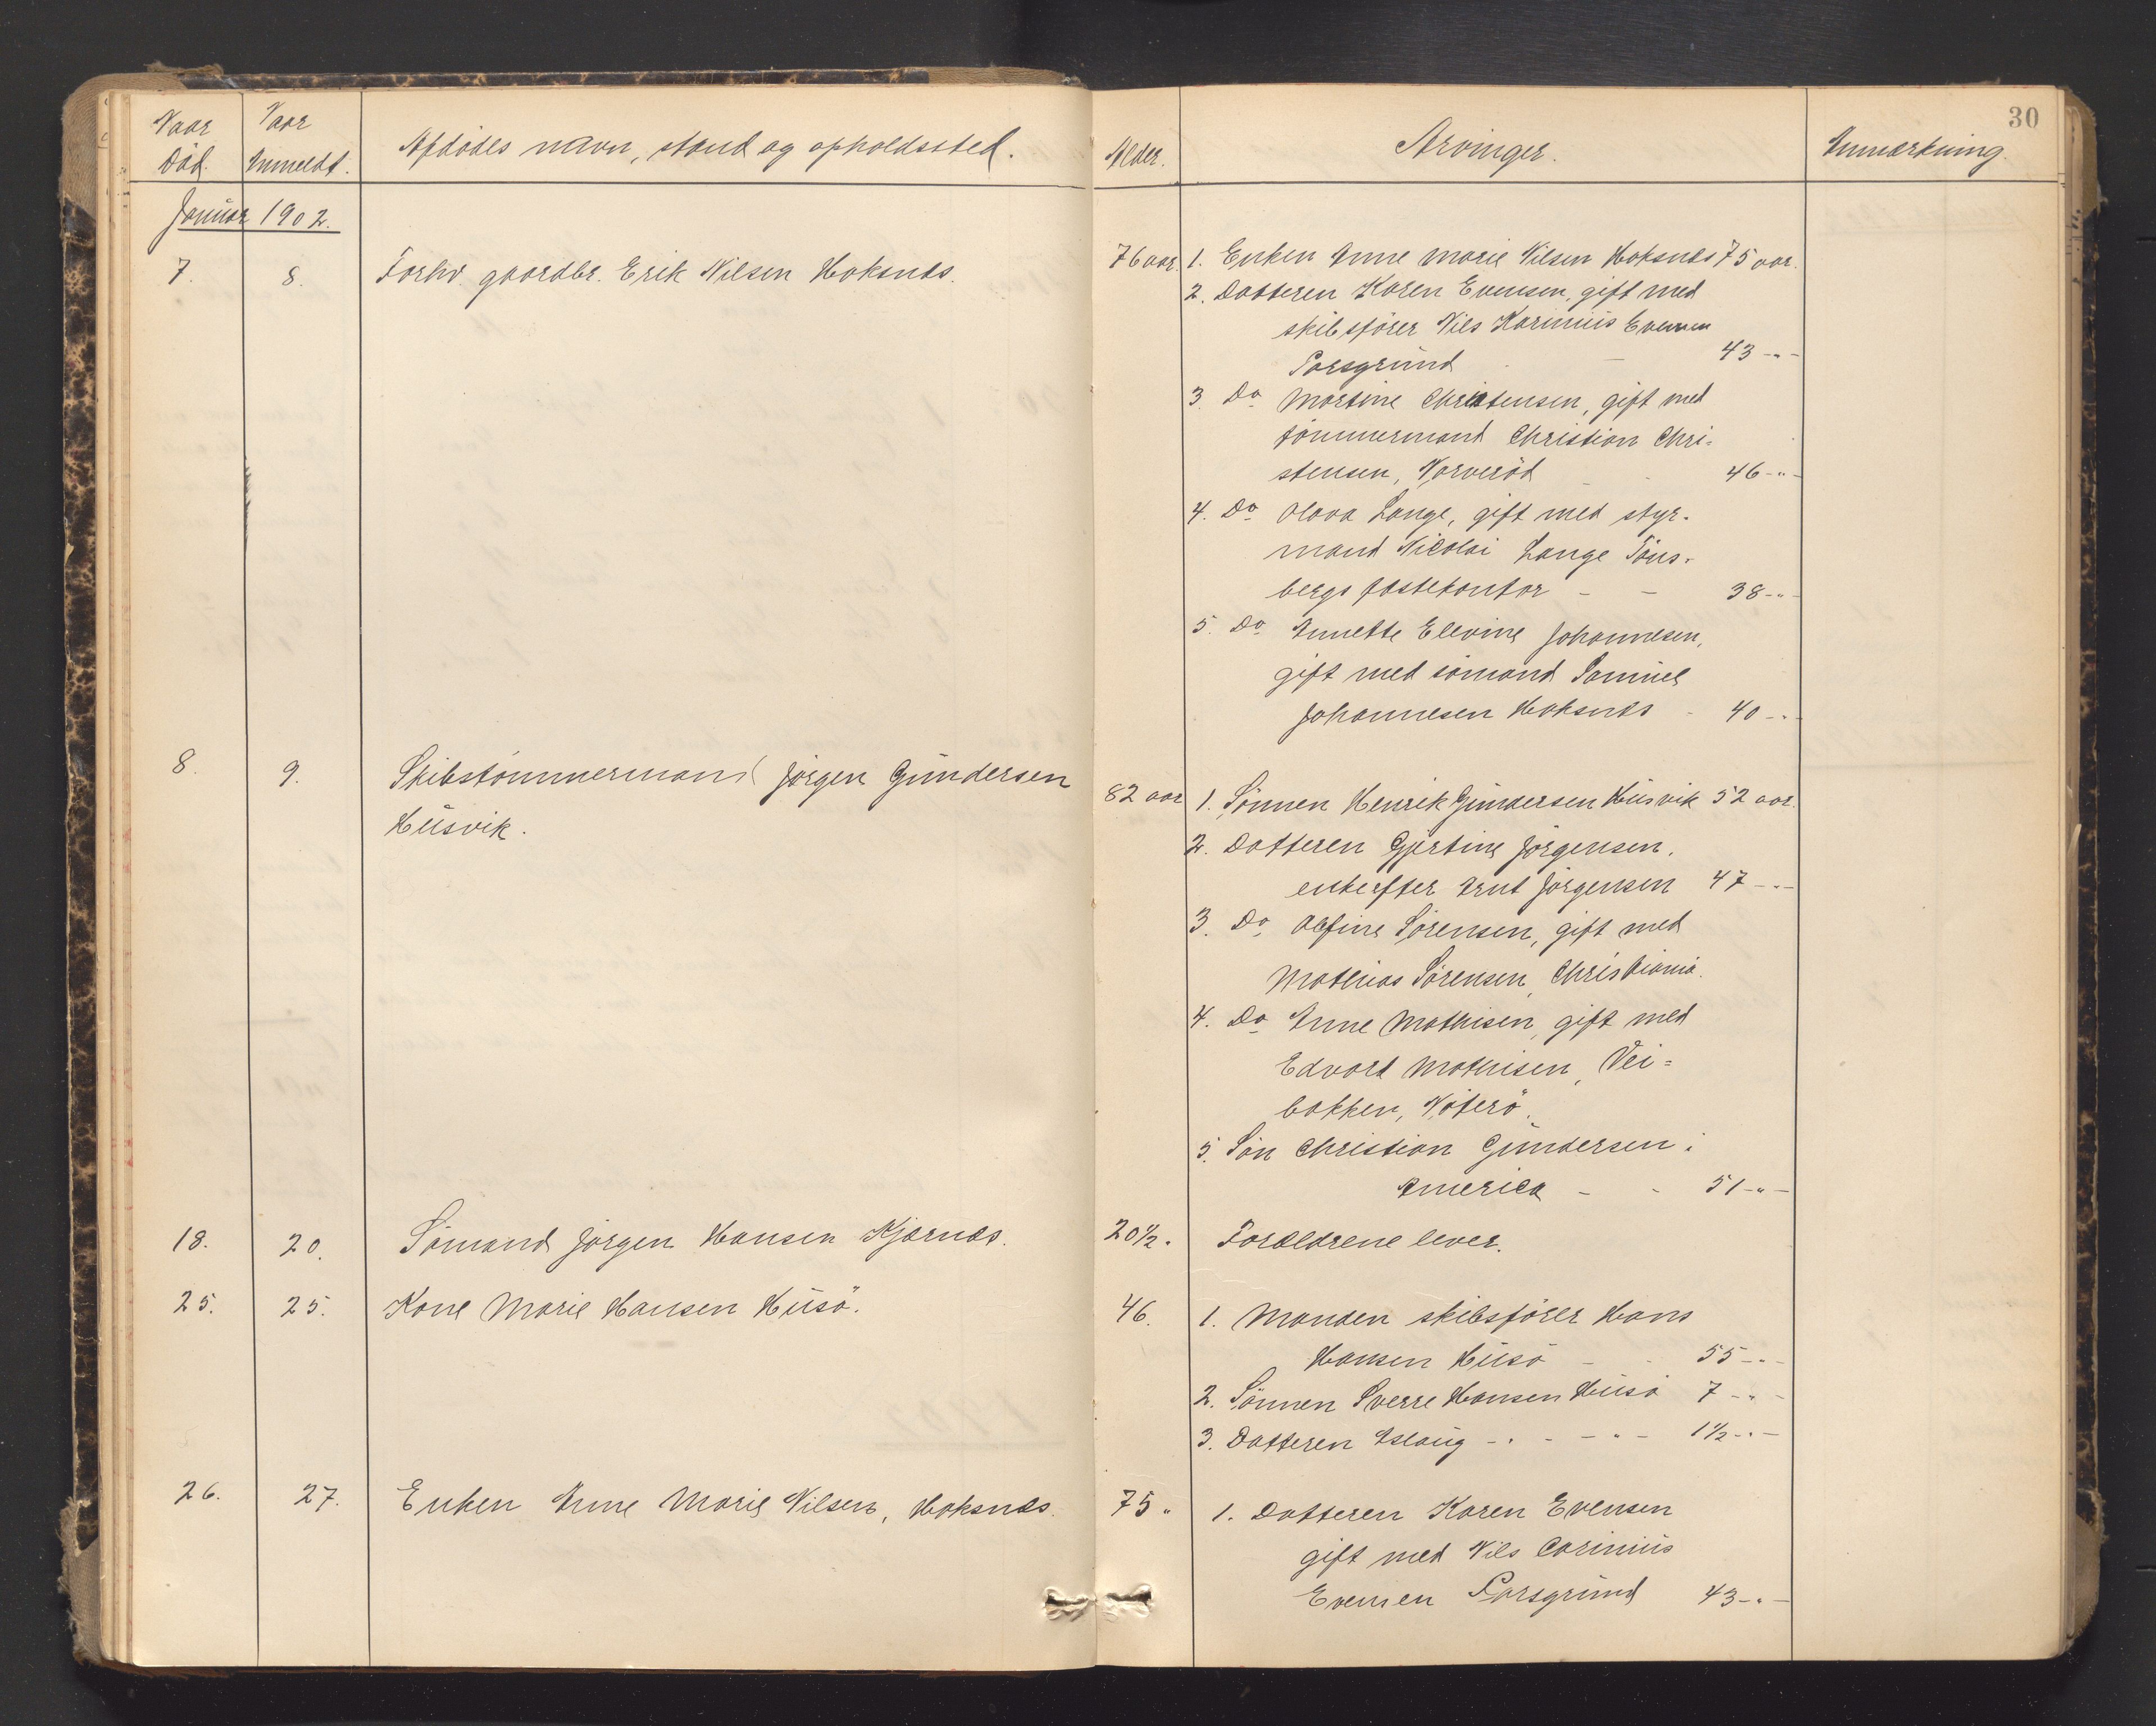 30
Naar Død. Naar Anmeldt. Afdødes navn, stand og opholdssted. Alder. Arvinger. Anmærkning.
Januar 1902.
7. 8. Forhv. gaardbr. Erik Nilsen Hoksnes. 76 aar. 1. Enken Anne Marie Nilsen Hoksnes 75 aar.
2. Datteren Karen Evensen, gift med
skibsfører Nils Karinius Evensen
Porsgrund - 43 -"-
3. Do Martine Christensen, gift med
tømmermand Christian Chri=
stensen, Narverød - - 46 -"-
4. Do Olava Lange, gift med styr-
mand Nicolai Lange Tøns-
bergs postekontor - - 38 -"-
5. Do Annette Elevine Johannesen,
gift med sømand Samuel
Johannesen Hoksnes - 40 -"-
8. 9. Skibstømmermand Jørgen Gundersen 82 aar 1. Sønnen Henrik Gundersen Husvik 52 aar.
Husvik.
2. Datteren Gjertine Jørgensen,
enke efter Arnt Jørgensen 47 -"-
3. Do Olefine Sørensen, gift med
Mathias Sørensen, Christiania.
4. Do Anne Mathisen, gift med
Edvart Mathisen, Vei=
bakken, Nøterø.
5. Søn Christian Gundersen i
America - - 51 -"-
18. 20. Sømand Jørgen Hansen Kjærnæs. 20 1/2 " Forældrene lever.
25. 25. Kone Marie Hansen Husø. 46. 1. Manden skibsfører Hans
Hansen Husø - - 55 -"-
2. Sønnen Sverre Hansen Husø 7 -"-
3. Datteren Aslaug -"- -"- 1 1/2 -"-
26. 27. Enken Anne Marie Nilsen, Hoksnes. 75 " 1. Datteren Karen Evensen
gift med Nils Carinius
Evensen Porsgrund 43 -"-